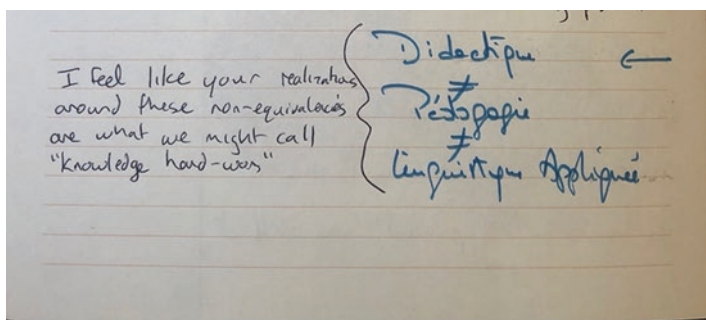 I feel like your realizations
around these non-equivalencies
are what we might call
"knowledge hard-won"
Didactique ←
≠
Pédagogie
≠
Linguistique Appliquée